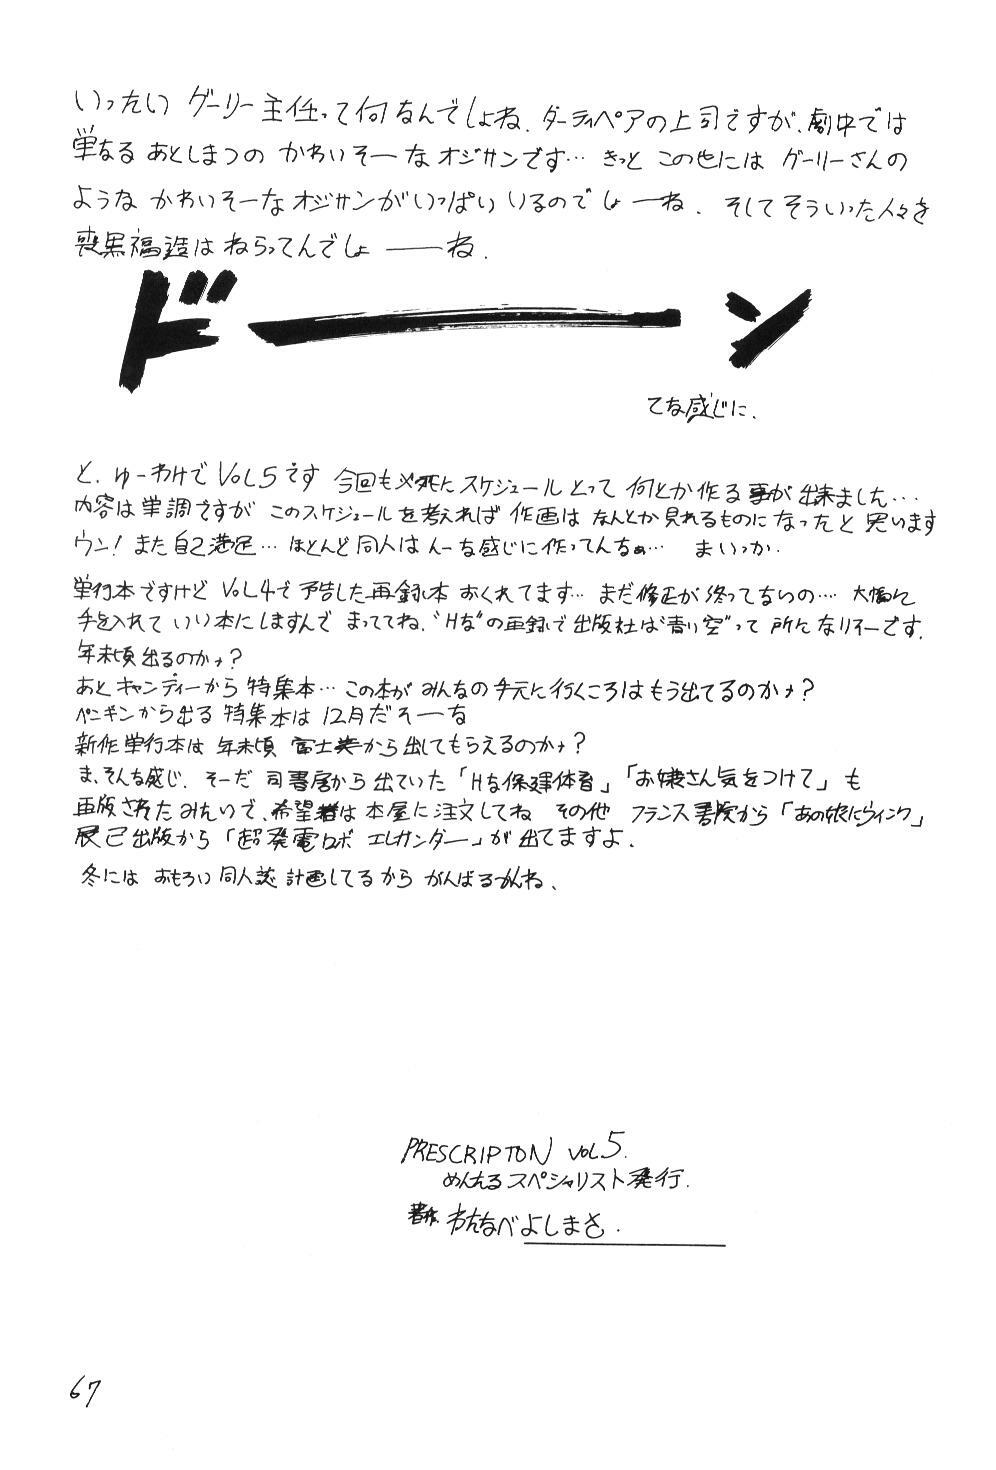 いったい グーリー主任って何なんでしょね、ダーティペアの上司ですが、劇中では
単なる あとしまつの かわいそーな オジサンです… きっと この世には グーリーさんの
ような かわいそーな オジサンが いっぱい いるのでしょーね. そして そういった人々を
喪黒福造は ねらってんでしょ ――ね.
ドーン
てな感じに.
と. ゆーわけで VOL5です 今回も必死に スケジュール とって 何とか作る事が 出来ました…
内容は単調ですが このスケジュールを考えれば 作画は なんとか見れるものに なったと 思います
ウン! また自己満足… ほとんど同人は んーな感じに作ってんなぁ… まいっか.
単行本ですけど VOL4で予告した再録本 おくれてます… まだ修正が終ってないの… 大幅に
手を入れて いい本にしますんで まっててね. “Hな”の再録で出版社は“青い空”って 所に なりそーです.
年末頃出るのかナ?
あと キャンディーから 特集本… この本が みんなの手元に行くころは もう出てるのかナ?
ペンギンから出る 特集本は 12月だそーな
新作単行本は 年末頃 富士美から出してもらえるのかナ?
ま、そんな感じ. そーだ 司書房から出ていた「Hな保健体育」「お嬢さん気をつけて」も
再版されたみたいで、希望者は本屋に注文してね その他 フランス書院から「あの娘にウィンク」
辰己出版から「超発電ロボ エレガンダー」が出てますよ.
冬には おもろい同人誌 計画してるから がんばるかんね、
PRESCRIPTON VOL5.
めんたるスペシャリスト発行.
著作. わたなべよしまさ.
67